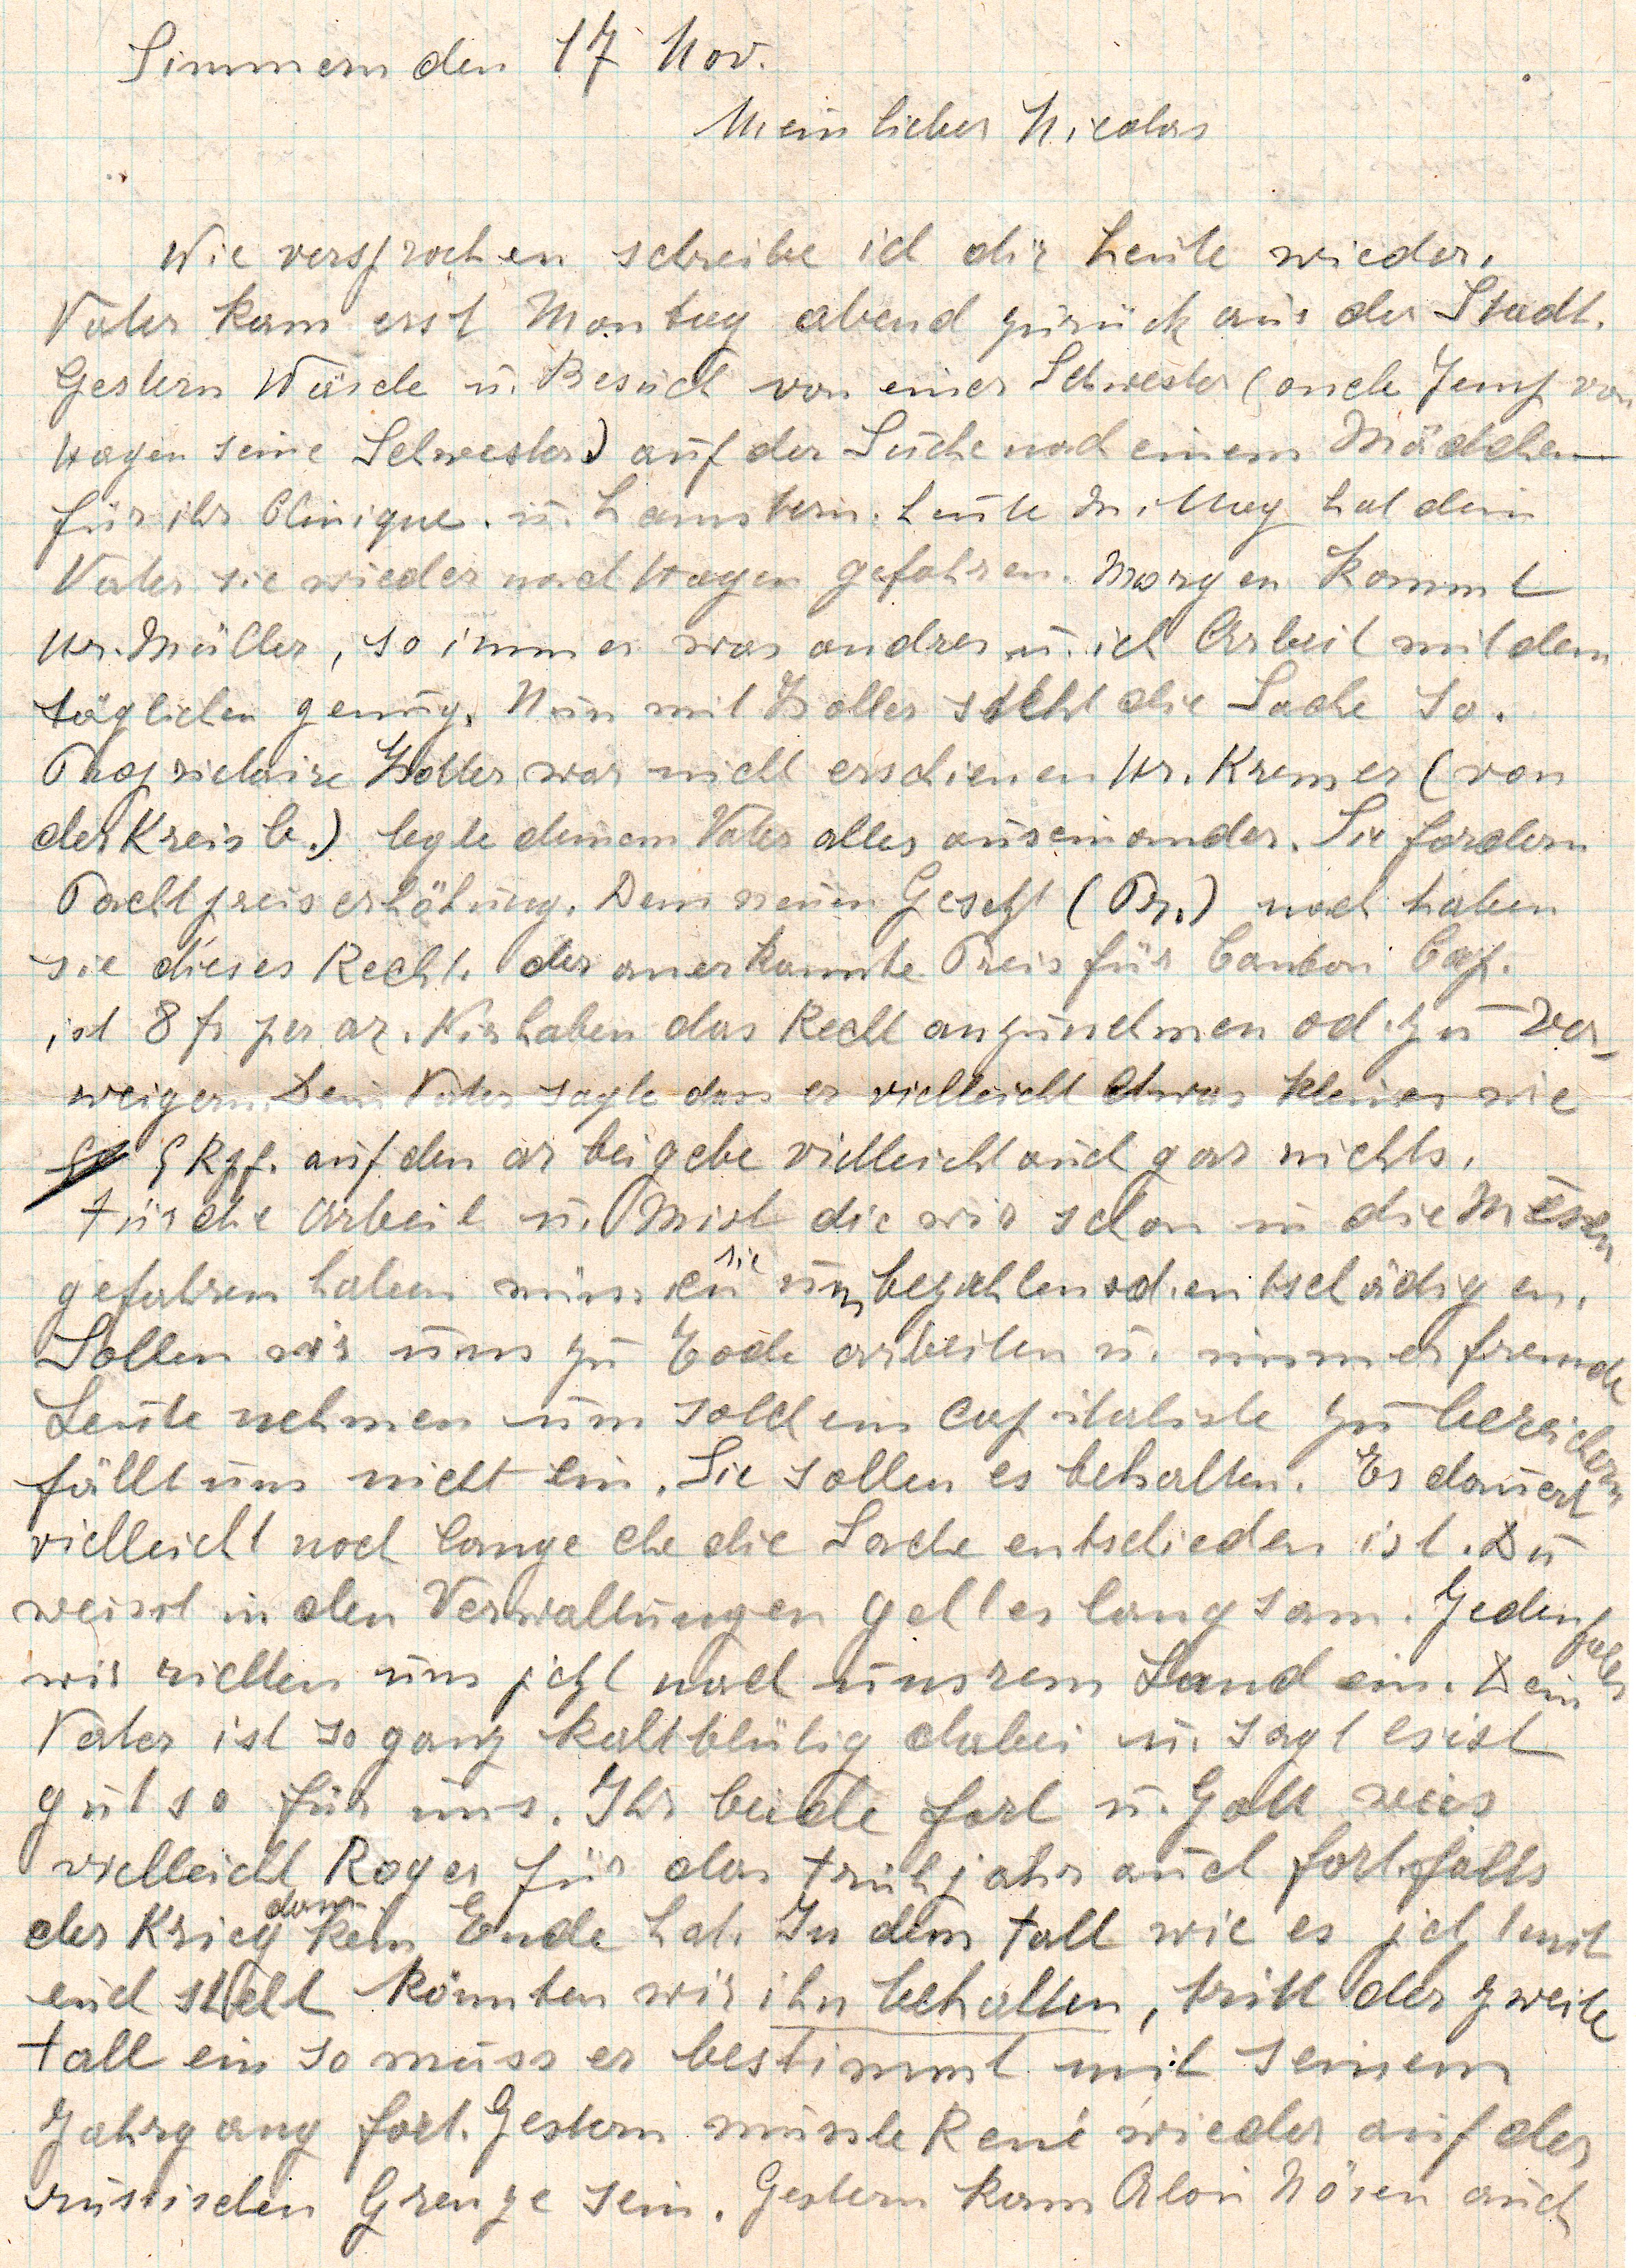 Simmern den 17 Nov.
Mein lieber Nicolas
Wie versprochen schreibe ich dir heute wieder.
Vater kam erst Montag abend zurück aus der Stadt.
Gestern Wäsche u. Besuch von einer Schwester (oncle Jemp von
Hagen seine Schwester) auf der Suche nach einem Mädchen
für ihr Clinique. u. hamstern. heute Mittag hat dein
Vater sie wieder nach Hagen gefahren. Morgen kommt
Hr. Müller, so immer was andres u. ich Arbeit mit dem
täglichen genug. Nun mit steht die Sache so.
Propriétaire war nicht erschienen Hr. Kremer (von
der Kreisb.) legte deinem Vater alles auseinander. Sie fordern
Pachtpreiserhöhung. Dem neuen Gesetz (Pr.) nach haben
sie dieses Recht. der anerkannte Preis für Canton Cap.
ist 8 fr per ar. Wir haben das Recht anzunehmen od. zu ver-
weigern. Dein Vater sagte dass er vielleicht etwas kleines wie
5 Rpf. auf den ar beigebe vielleicht auch gar nichts.
Für die Arbeit u. Mist die wir schon in die
gefahren haben müssen sie uns bezahlen od. entschädigen.
Sollen wir uns zu Tode arbeiten u. immer fremde
Leute nehmen um solch ein capitaliste zu bereichern
fällt uns nicht ein. Sie sollen es behalten. Es dauert
vielleicht noch lange ehe die Sache entschieden ist. Du
weisst in den Verwaltungen geht es langsam. Jedenfalls
wir richten uns jetzt nach unsrem Land ein. Dein
Vater ist so ganz kaltblütig dabei u. sagt es ist
gut so für uns. Ihr beide fort u. Gott weis
vielleicht Roger für das Frühjahr auch fort. falls
der Krieg dann kein Ende hat. In dem Fall wie es jetzt mit
euch steht könnten wir ihn behalten, tritt der zweite
Fall ein so muss er bestimmt mit seinem
Jahrgang fort. Gestern musste René wieder auf der
russischen Grenze sein. Gestern kam Aloi Nösen auch